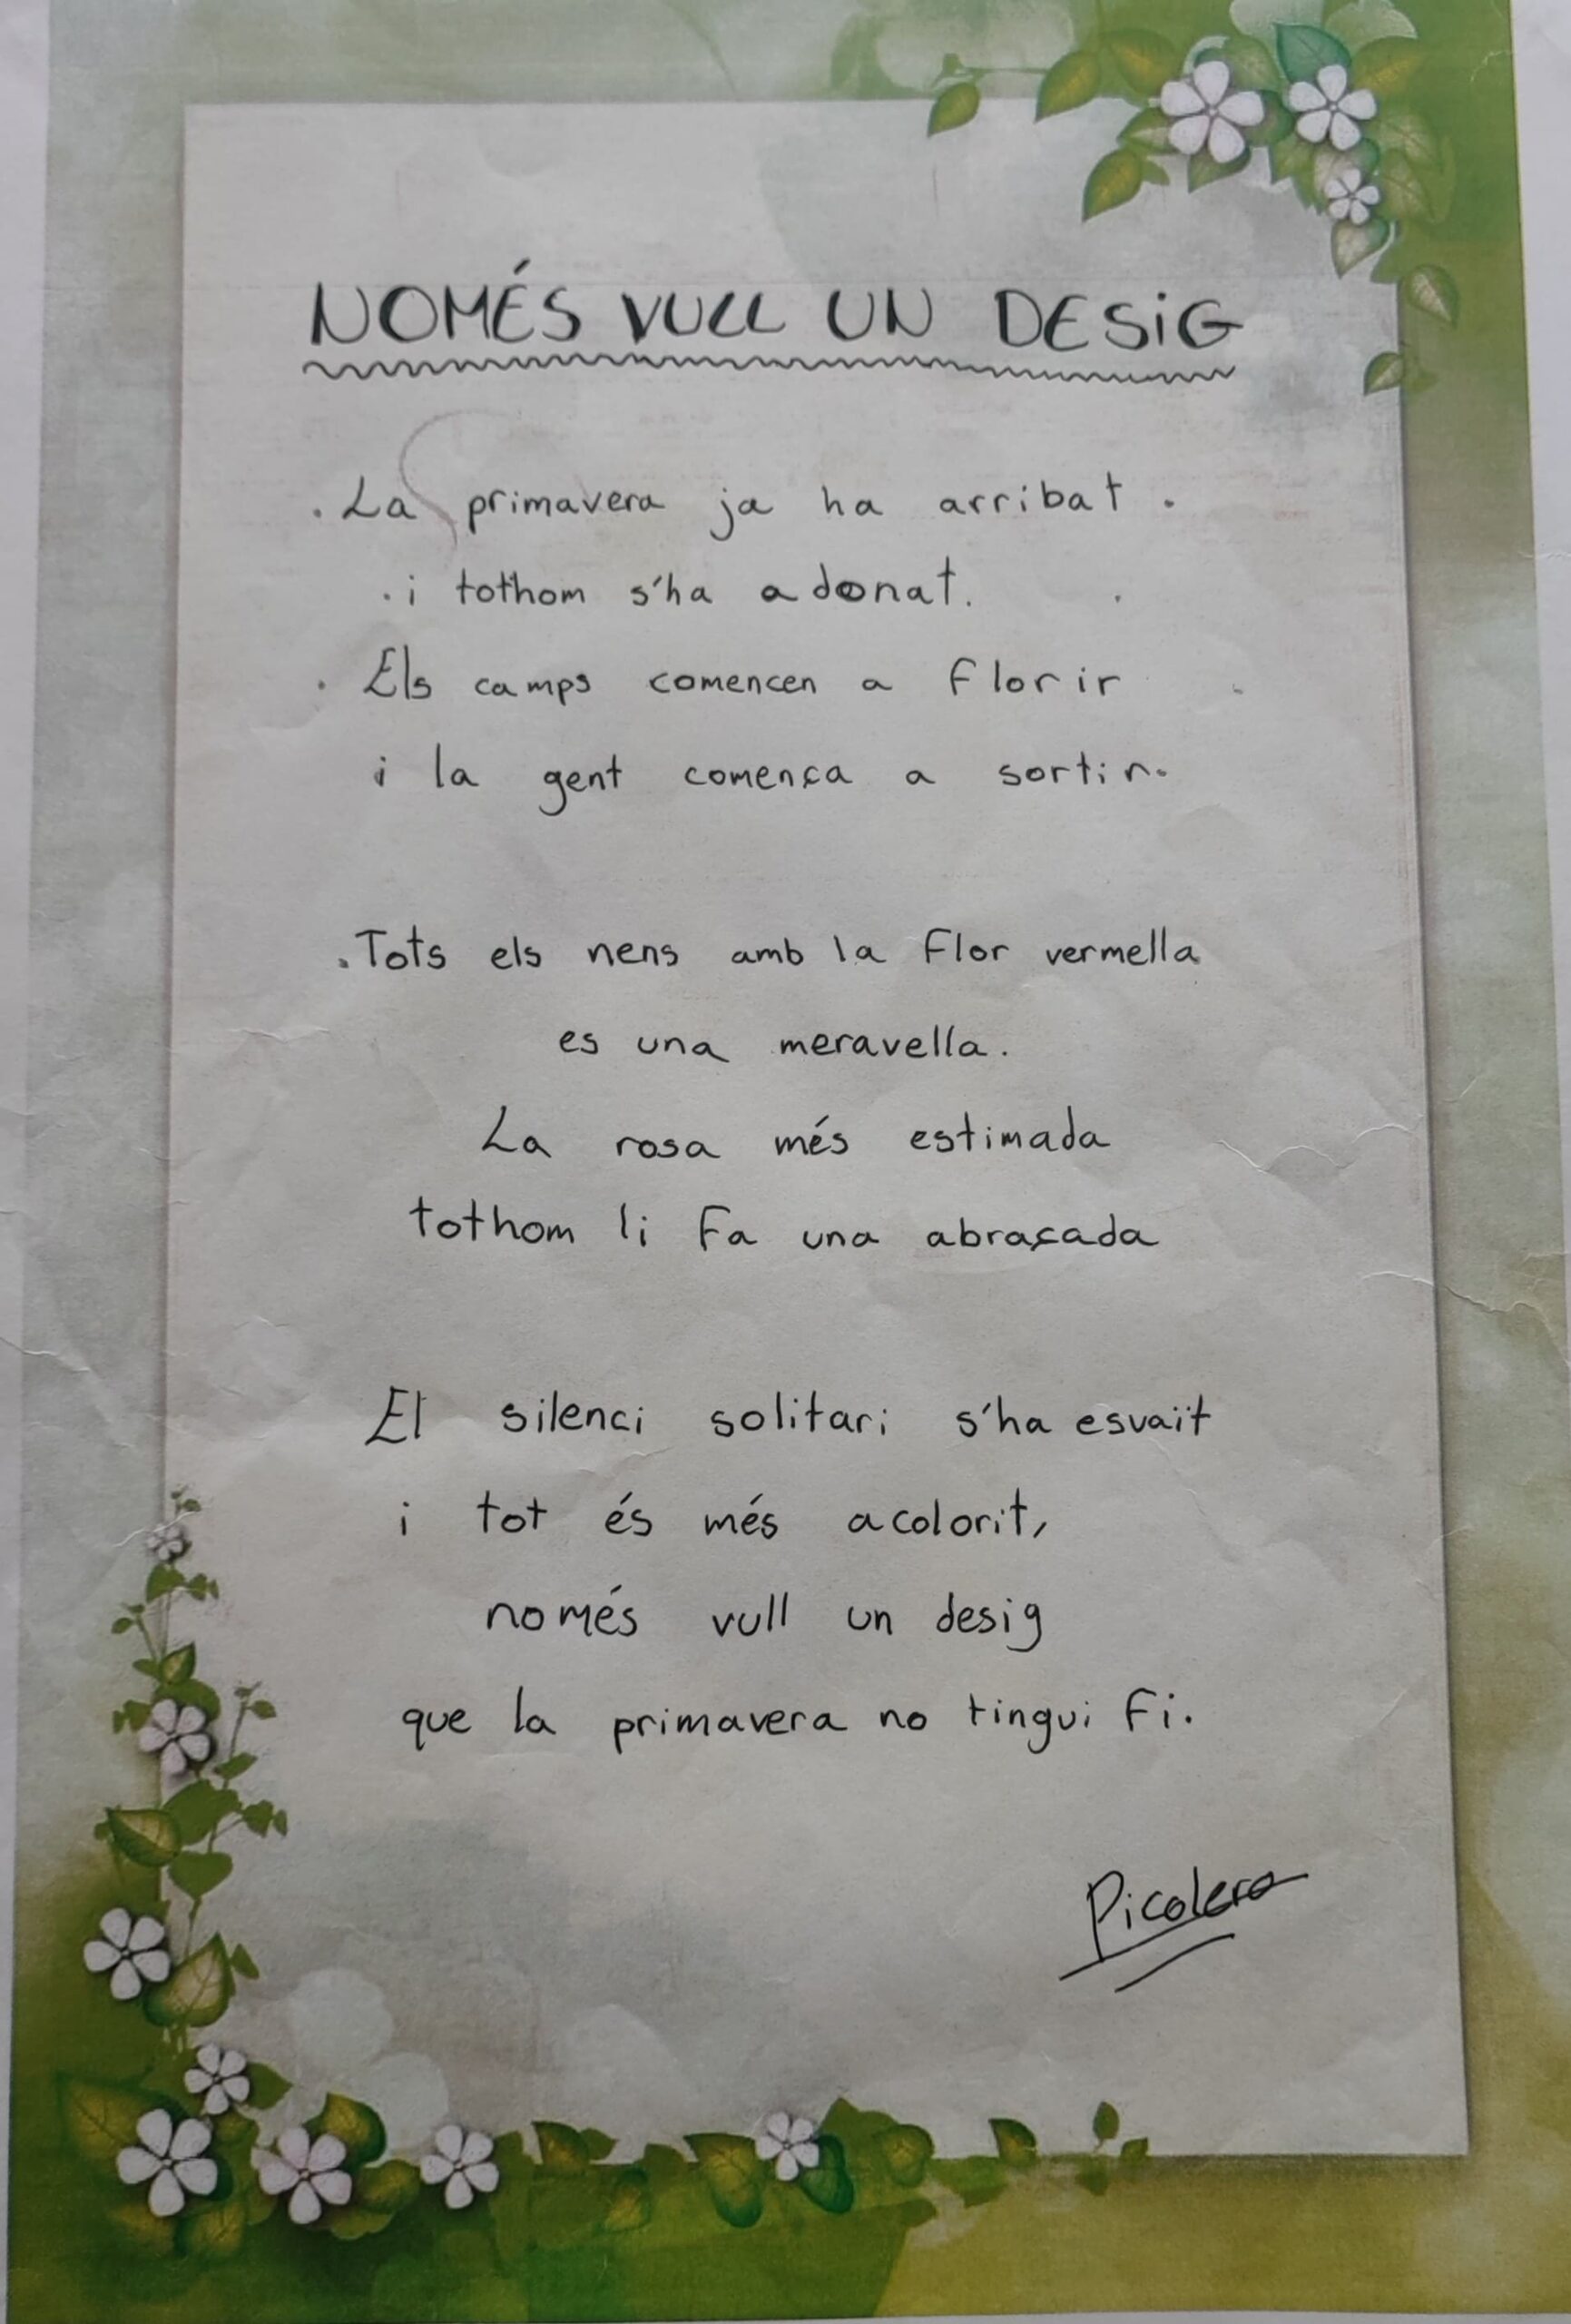 NOMÉS VULL UN DESiG
La primavera ja ha arribat
i tothom s'ha adonat.
Els camps comencen a florir
i la gent comença a sortir.
Tots els nens amb la flor vermella
es una meravella.
La rosa més estimada
tothom li fa una abraçada
El silenci solitari s'ha esvaït
i tot és més acolorit,
només vull un desig
que la primavera no tingui fi.
Picolera